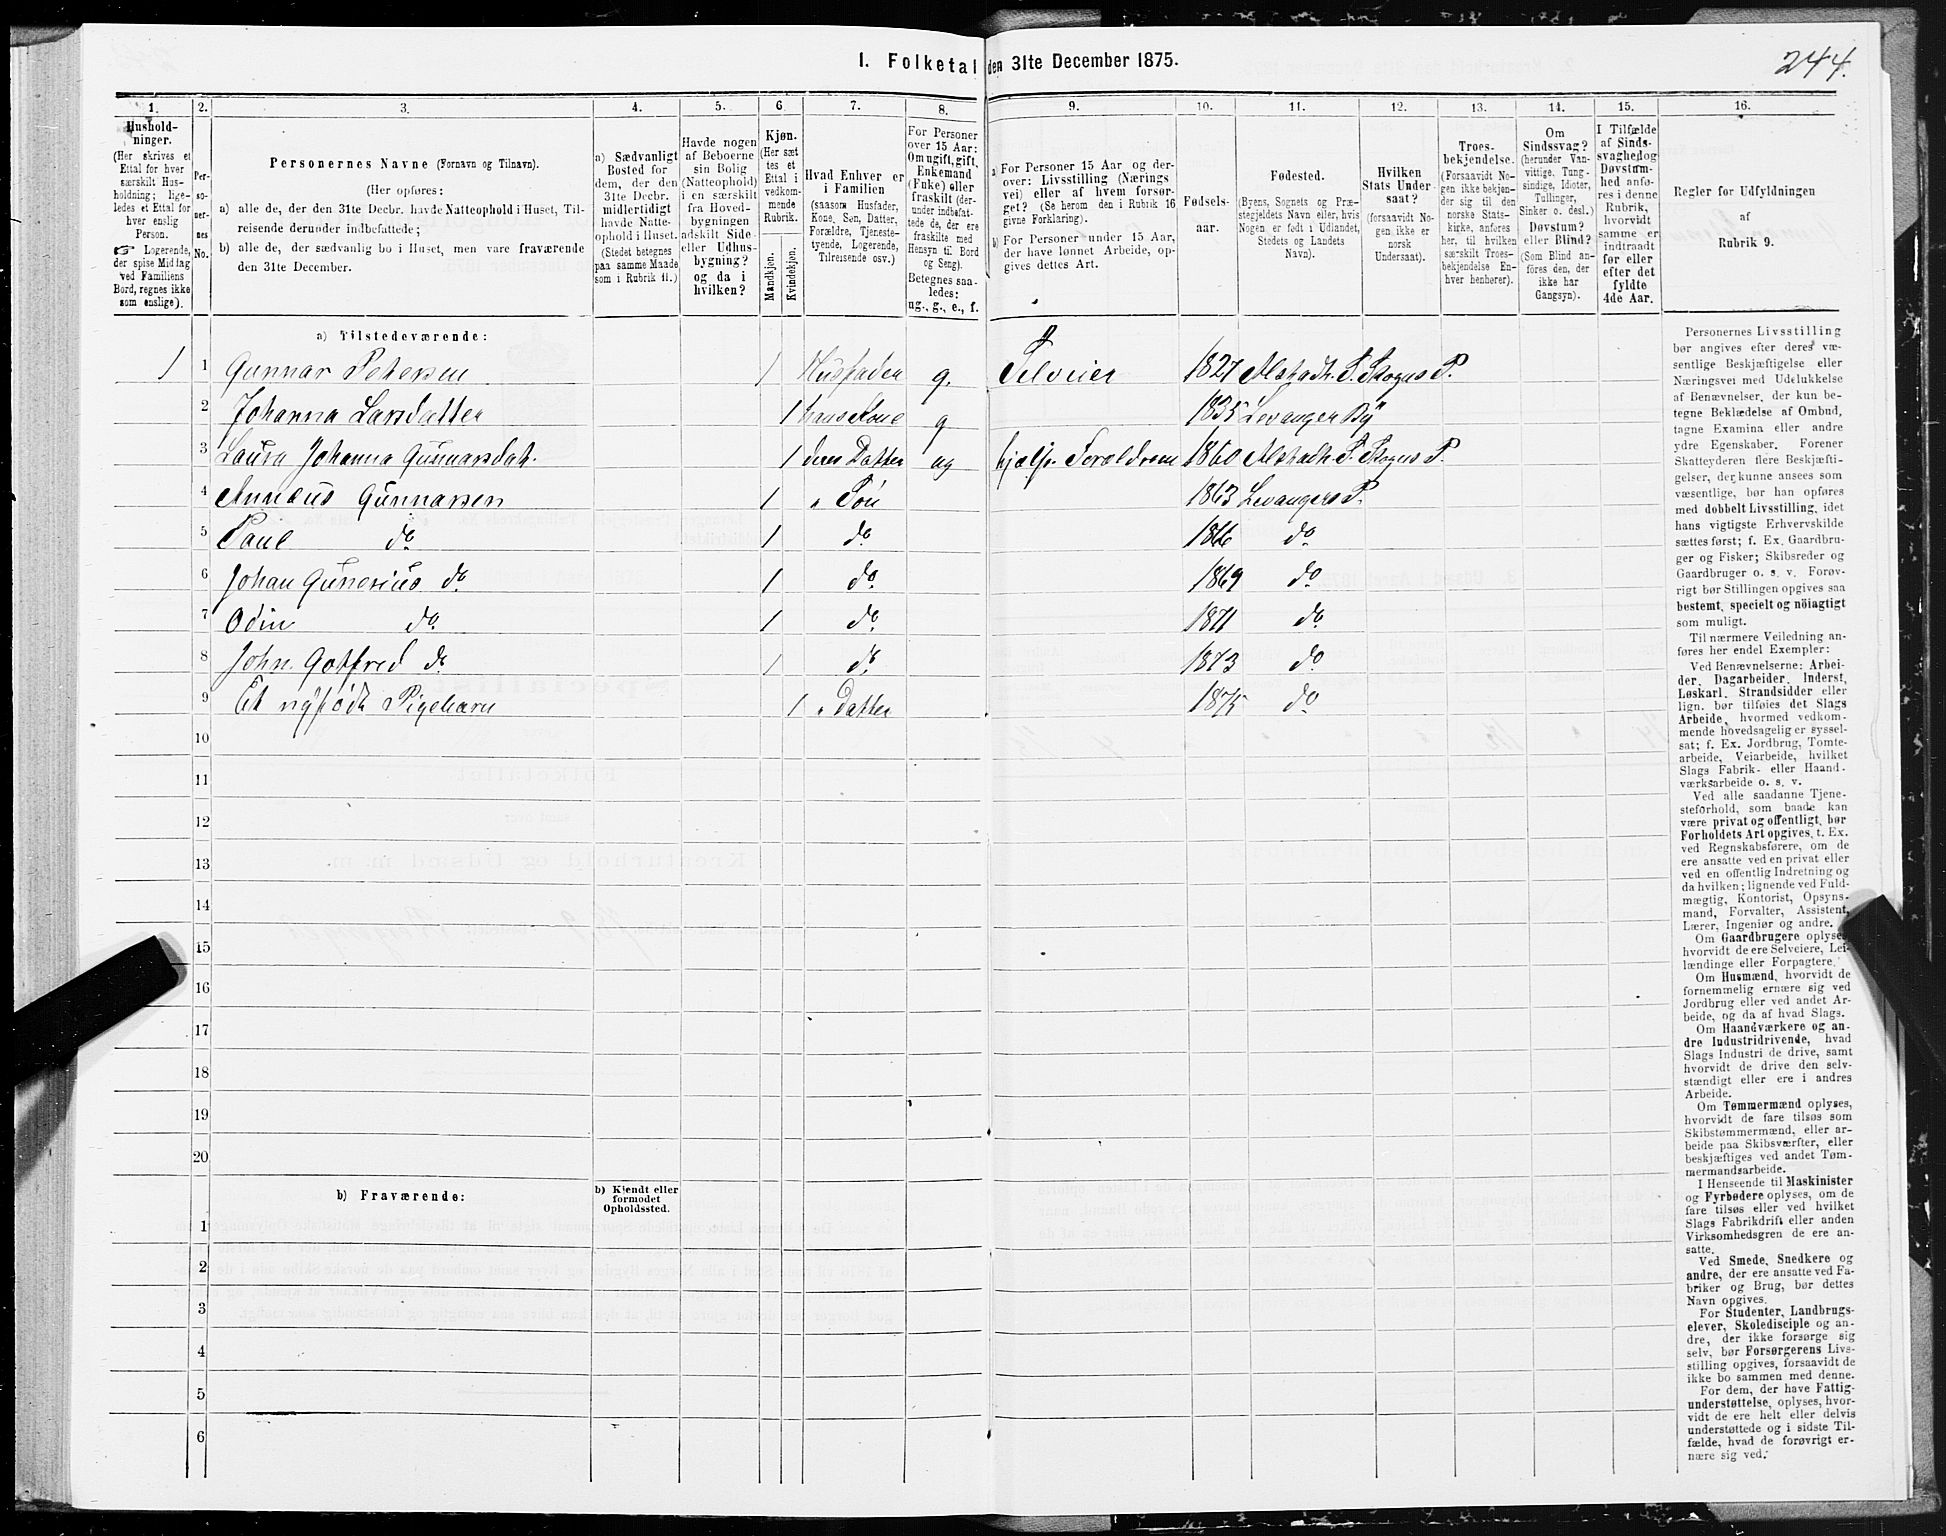 244.
I. Folketal den 31te December 1875.
1. 2. 3. 4. 5. 6. 7. 8. 9. 10. 11. 12. 13. 14. 15. 16.
Husholdninger.
(Her skrives et
Ettal for hver
særskilt Husholdning;
ligeledes et Ettal for
hver enslig
Person.
☞ Logerende,
der spise Middag
ved Familiens
Bord, regnes ikke
som enslige).
Personernes No.
Personernes Navne (Fornavn og Tilnavn).
(Her opføres:
a) alle de, der den 31te Decbr. havde Natteophold i Huset, Tilreisende derunder indbefattede;
b) alle de, der sædvanlig bo i Huset, men vare fraværende
den 31te December.
a) Sædvanligt
Bosted for
dem, der den
31te Decbr.
midlertidigt
havde Natteophold i Huset.
(Stedet betegnes
paa samme Maade
som i Rubrik 11.)
Havde nogen
af Beboerne
sin Bolig
(Natteophold)
i en særskilt
fra Hovedbygningen
adskilt Side- eller Udhusbygning?
og da i
hvilken?
Kjøn.
(Her sættes et
Ettal i
vedkommende
Rubrik.
Mandkjøn.
Kvindekjøn.
Hvad Enhver er
i Familien
(saasom Husfader,
Kone, Søn, Datter,
Forældre, Tjenestetyende, Logerende,
Tilreisende osv.)
For Personer
over 15 Aar:
Om ugift, gift,
Enkemand
(Enke) eller
fraskilt (derunder indbefattede de, der ere
fraskilte med
Hensyn til Bord
og Seng).
Betegnes saaledes:
ug., g., e., f.
a) For Personer 15 Aar og derover: Livsstilling (Næringsvei) eller af hvem forsørget? (Se herom den i Rubrik 16
givne Forklaring).
b) For Personer under 15 Aar,
der have lønnet Arbeide, opgives dettes Art.
Fødselsaar.
Fødested.
(Byens, Sognets og Præstegjeldets Navn eller, hvis
Nogen er født i Udlandet,
Stedets og Landets
Navn).
Hvilken
Stats Undersaat?
(forsaavidt Nogen ikke er
norsk
Undersaat).
Troesbekjendelse.
(Forsaavidt Nogen ikke bekjender sig til den
norske Statskirke, anføres
her, til hvilken
særskilt Troesbekjendelse Enhver henhører).
Om
Sindssvag?
(herunder Vanvittige, Tungsindige, Idioter,
Tullinger,
Sinker o. desl.)
Døvstum?
eller Blind?
(Som Blind anføres den, der
ikke har
Gangsyn).
I Tilfælde
af Sindssvaghed og
Døvstumhed anføres i denne
Rubrik,
hvorvidt
samme er
indtraadt
før eller
efter det
fyldte
4de Aar.
Regler for Udfyldningen
af
Rubrik 9.
a) Tilstedeværende:
1 1 Gunnar Petersen 1 Husfader g. Selveier 1827 Alstadh. S. Skogns P.
2 Johanna Larsdatter 1 hans Kone g 1835 Levanger By
3 Laura Johanna Gunnarsdatr. 1 deres Datter ug hjælpr Forældrene 1860 Alstadh. S. Skogns P.
4 Annæus Gunnarsen 1 " Søn 1863 Levangers P.
5 Paul do 1 do. 1866 do
6 Johan Gunerius do 1 do. 1869 do
7 Odin do. 1 do. 1871 do
8 John Gotfred do 1 do. 1873 do
9 Et nyfødt Pigebarn 1 " Datter 1875 do
10
11
12
13
14
15
16
17
18
19
20
b) Fraværende:
b) Kjendt eller
formodet
Opholdssted.
1
2
3
4
5
6
Personernes Livsstilling
bør angives efter deres væsentlige Beskjæftigelse eller
Næringsvei med Udelukkelse
af Benævnelser, der kun betegne Beklædelse af Ombud,
tagne Examina eller andre
ydre Egenskaber. Forener
Skatteyderen flere Beskjæftigelser, der kunne ansees som
væsentlige, bør han opføres
med dobbelt Livsstilling, idet
hans vigtigste Erhvervskilde
sættes først; f. Ex. Gaardbruger og Fisker; Skibsreder og
Gaardbruger o. s. v. Forøvrigt bør Stillingen opgives saa
bestemt, specielt og nöiagtigt
som muligt.
Til nærmere Veiledning anføres her endel Exempler:
Ved Benævnelserne: Arbeider, Dagarbeider, Inderst,
Løskarl, Strandsidder eller
lign. bør tilføies det Slags
Arbeide, hvormed vedkommende hovedsagelig er sysselsat; f. Ex. Jordbrug, Tomtearbeide, Veiarbeide, hvilket
Slags Fabrik- eller Haandværksarbeide o. s. v.
Ved alle saadanne Tjenesteforhold, som baade kan
være privat og offentligt, bør
Forholdets Art opgives, t. Ex.
ved Regnskabsførere, om de
ere ansatte ved en privat eller
ved en offentlig Indretning og
da hvilken; lignende ved Fuldmægtig, Kontorist, Opsynsmand, Forvalter, Assistent,
Lærer, Ingeniør og andre.
Om Gaardbrugere oplyses,
hvorvidt de ere Selveiere, Leilændinge eller Forpagtere.
Om Husmænd, hvorvidt de
fornemmelig ernære sig ved
Jordbrug eller ved andet Arbeide, og da af hvad Slags.
Om Haandværkere og andre Industridrivende, hvad
Slags Industri de drive, samt
hvorvidt de drive den selvstændigt eller ere i andres
Arbeide.
Om Tømmermænd oplyses,
hvorvidt de fare tilsøs som
Skibstømmermænd, eller arbeide paa Skibsværfter, eller
beskjæftiges ved andet Tømmermandsarbeide.
I Henseende til Maskinister
og Fyrbødere oplyses, om de
fare tilsøs eller ved hvilket
Slags Fabrikdrift eller anden
Virksomhedsgren de ere ansatte.
Ved Smede, Snedkere og
andre, der ere ansatte ved Fabriker og Brug, bør dettes
Navn opgives.
For Studenter, Landbrugselever, Skoledisciple og andre, der ikke forsørge sig
selv, bør Forsørgerens Livsstilling opgives, forsaavidt de
ikke bo sammen med denne.
For dem, der have Fattigunderstøttelse, oplyses, hvorvidt de ere helt eller delvis
understøttede og i sidste Tilfælde, hvad de forøvrigt ernære sig ved.